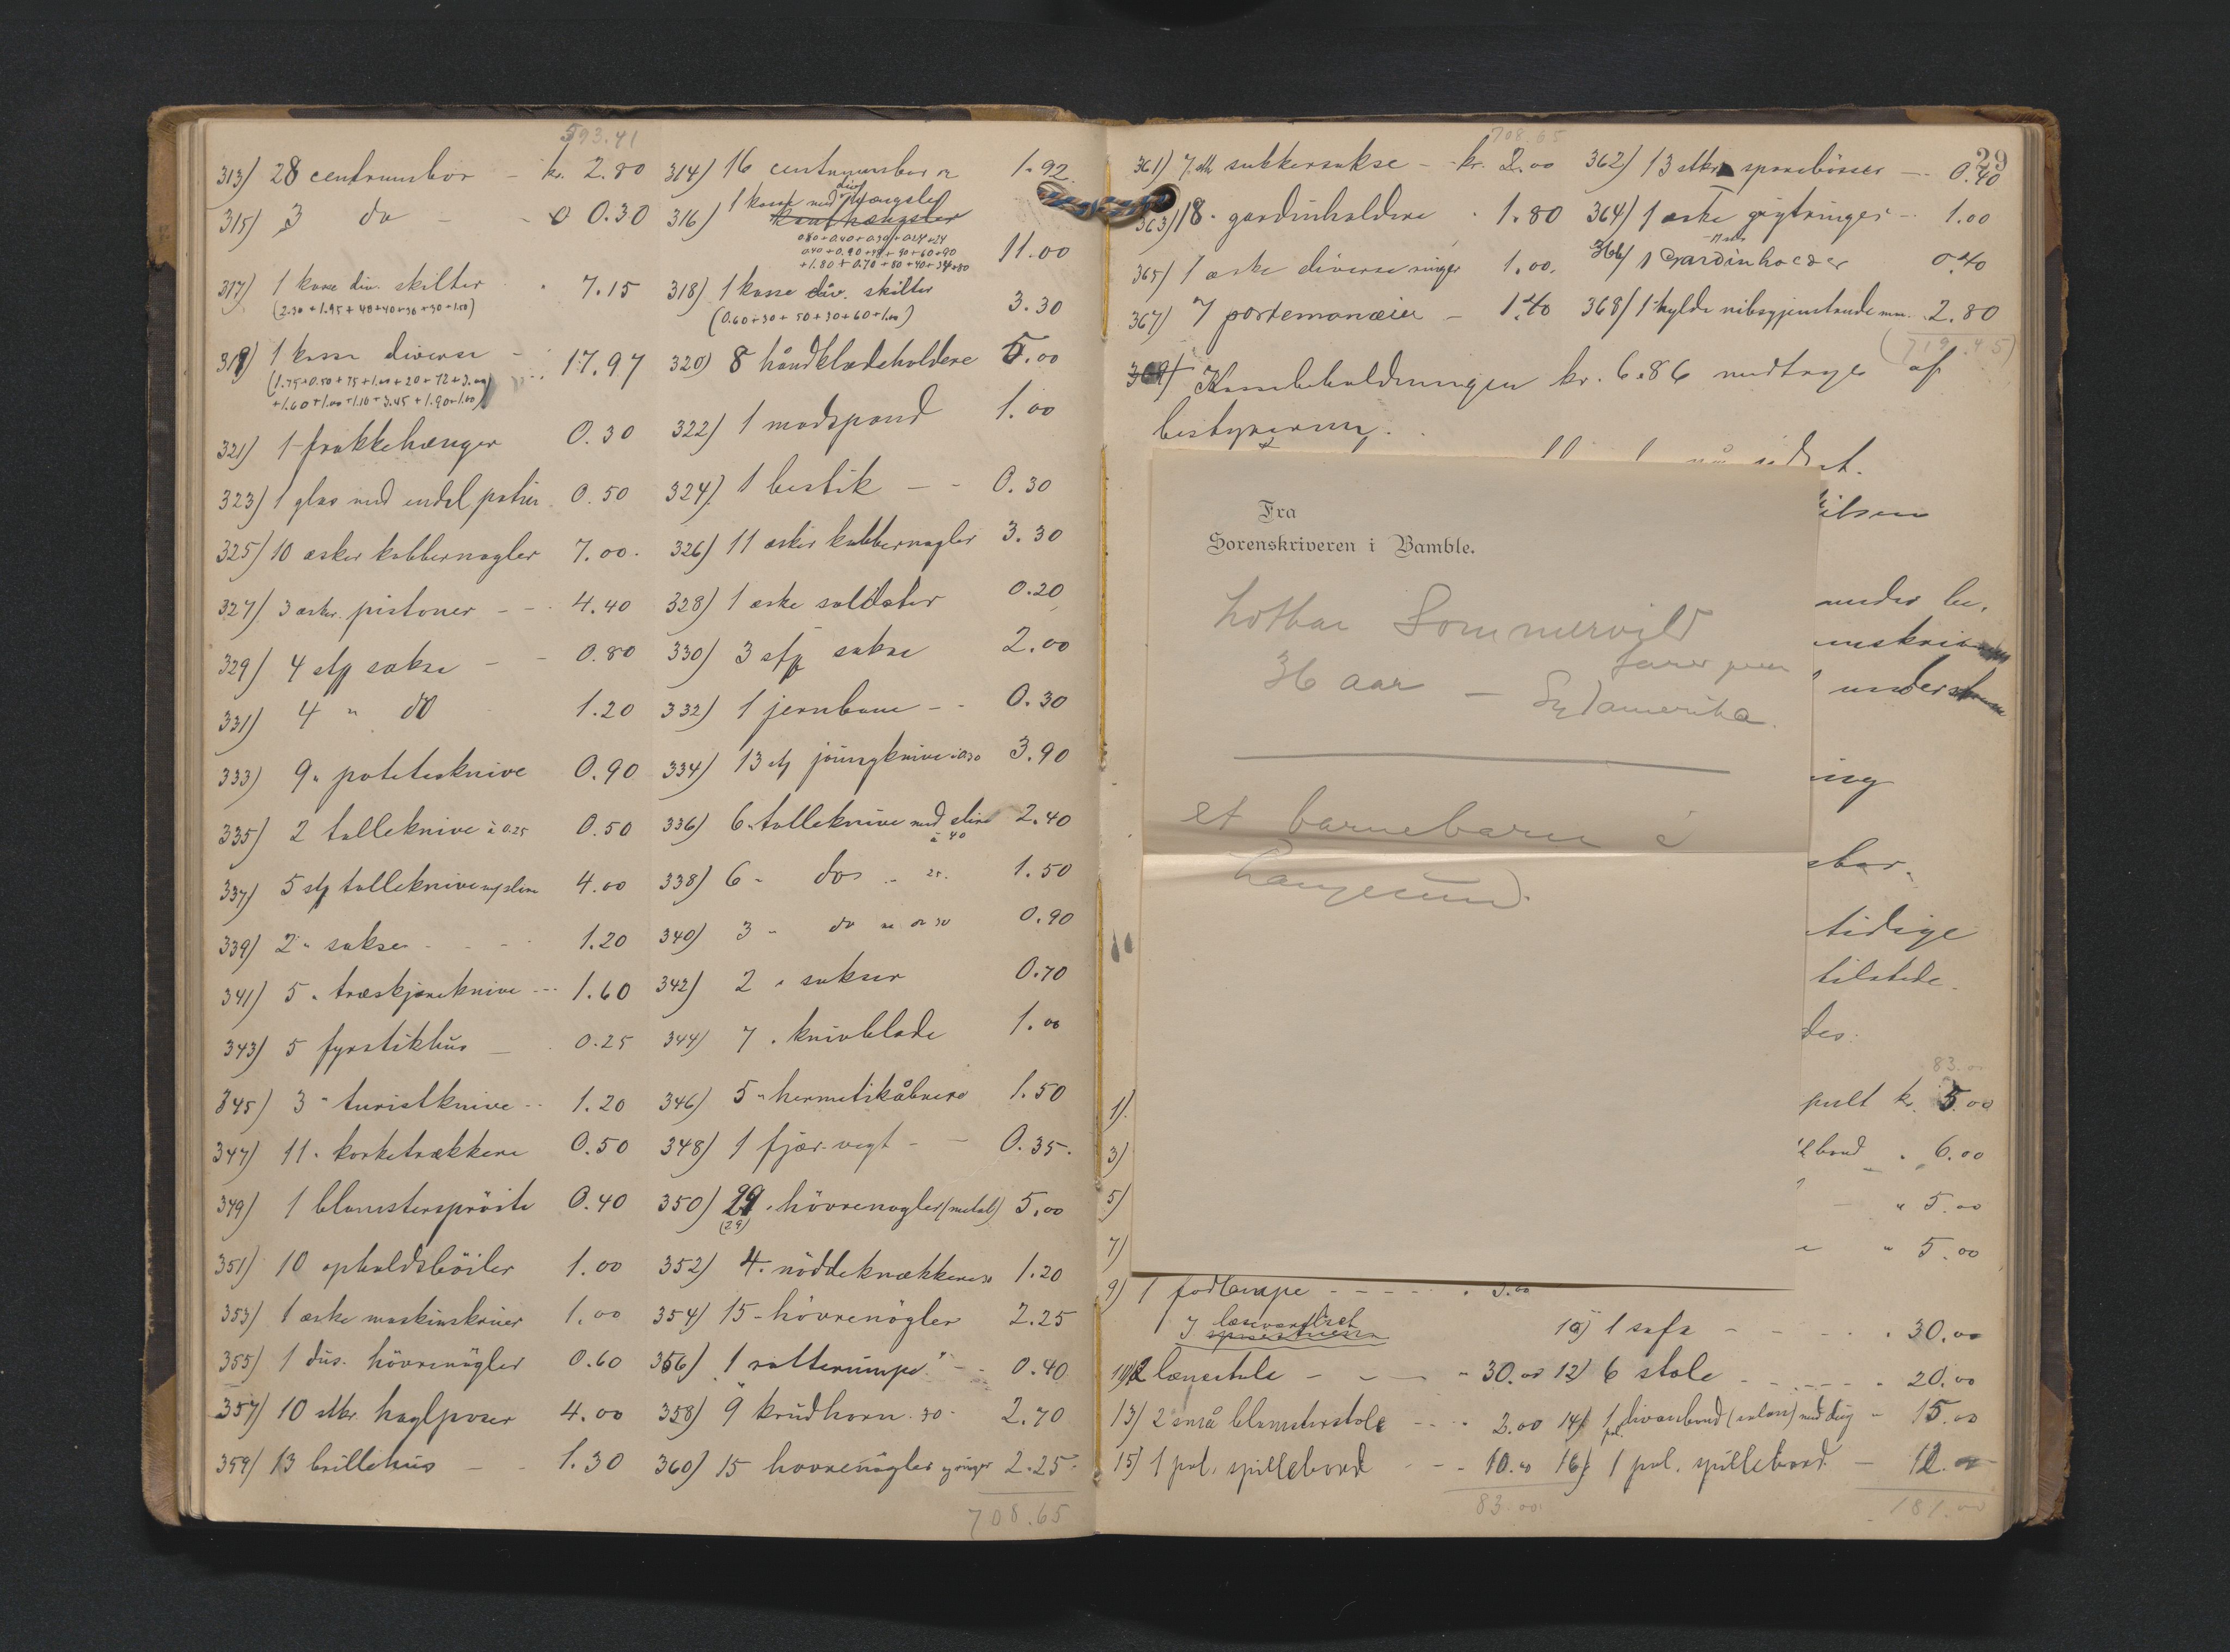 593.41
313) 28 centrumsbor - kr. 2.80 314) 16 centrumsbor 1.92
315) 3 do - - 0.30 316) 1 kasse med div. hængsler
kanthængsler
0.80+0.40+0.30+0.24+24
0.40+0.90+ +90+60+90
+1.80+0.70+80+40+34+80 11.00
317) 1 kasse div. skilter 7.15 318) 1 kasse div. skilter
(2.30+1.95+40+40+30+30+1.50) (0.60+30+50+30+60+1.00) 3.30
319) 1 kasse diverse - 17.97 320) 8 håndklædeholdere 5.00
(1.75+0.50+75+1.00+20+72+3.00
+1.60+1.00+1.10+3.45+1.90+1.00)
321) 1 frakkehænger 0.30 322) 1 madspand 1.00
323) 1 glas med endel 0.50 324) 1 bestik - - 0.30
325) 10 æsker kobbernagler 7.00 326) 11 æsker kobbernagler 3.30
327) 3 æsker pistoner - - 4.40 328) 1 æske soldater 0.20
329) 4 stk sakse - - 0.80 330) 3 stk sakse 2.00
331) 4 " do 1.20 332) 1 jernbane - - 0.30
333) 9 " potetesknive 0.90 334) 13 stk knive 3.90
335) 2 tolleknive à 0.25 0.50 336) 6 tolleknive med slire 2.40
à 40
337) 5 stk tolleknive m/slire 4.00 338) 6 - do - 25. 1.50
339) 2 " sakse - - - 1.20 340) 3 - do 30 0.90
341) 5 " træskjæreknive - - 1.60 342) 2 " sakser 0.70
343) 5 fyrstikhus - 0.25 344) 7 " knivblade 1.00
345) 3 " turistknive - - 1.20 346) 5 " hermetikåbnere 1.50
347) 11 " korketrækkere 0.50 348) 1 fjær-vegt - - 0.35.
349) 1 blomstersprøite 0.40 350) 29 " hövrenagler (metal) 5.00
(29)
351) 10 opholdsböiler 1.00 352) 4 " nöddeknækkere 1.20
353) 1 æske maskinskruer 1.00 354) 15 - hövrenögler 2.25
355) 1 dus. hövrenögler 0.60 356) 1 rotterumpe - - 0.40
357) 10 stkr. haglposer 4.00 358) 9 krudhorn 30 - 2.70
359) 13 brillehus - - 1.30 360) 15 hovrenögler 2.25
708.65
708.65
29
361) 7 stk sukkersakse - - kr. 2.00 362) 13 stkr sparebösser - - 0.40
363) 18 " gardinholdere " 1.80 364) 1 æske gigtringer - - 1.00
365) 1 æske diverse ringer 1.00. 366) 1 Gardinholder 0.40
367) 7 portemonæier - 1.40 368) 1 hylde nibsgjenstande mm. 2.80
(719.45)
369) Kassebeholdningen kr. 6.86 modtages af
bestyreren.
Fra
Sorenskriveren i Bamble.
Lothar Sommervild
36 aar - farer paa
Sydamerika.
et barnebarn i
Langesund.
under be,
ing
tidige
tilstede.
des.
83.00
1) pult kr. 5.00
3) bord " 6.00
5) - " 5.00
7) " 5.00
9) 1 fodlampe - - - - - " 3.00
I
10) 1 sofa - - - - " 30.00
11) 2 lænestole - - - " 30.00 12) 6 stole - - - - - " 20.00
13) 2 små blomsterstole - - " 2.00 14) 1 pol. divanbord (salon) med dug - 15.00
15) 1 pol. spillebord - - - 10.00 16) 1 pol. spillebord - 12.00
83.00 181.00